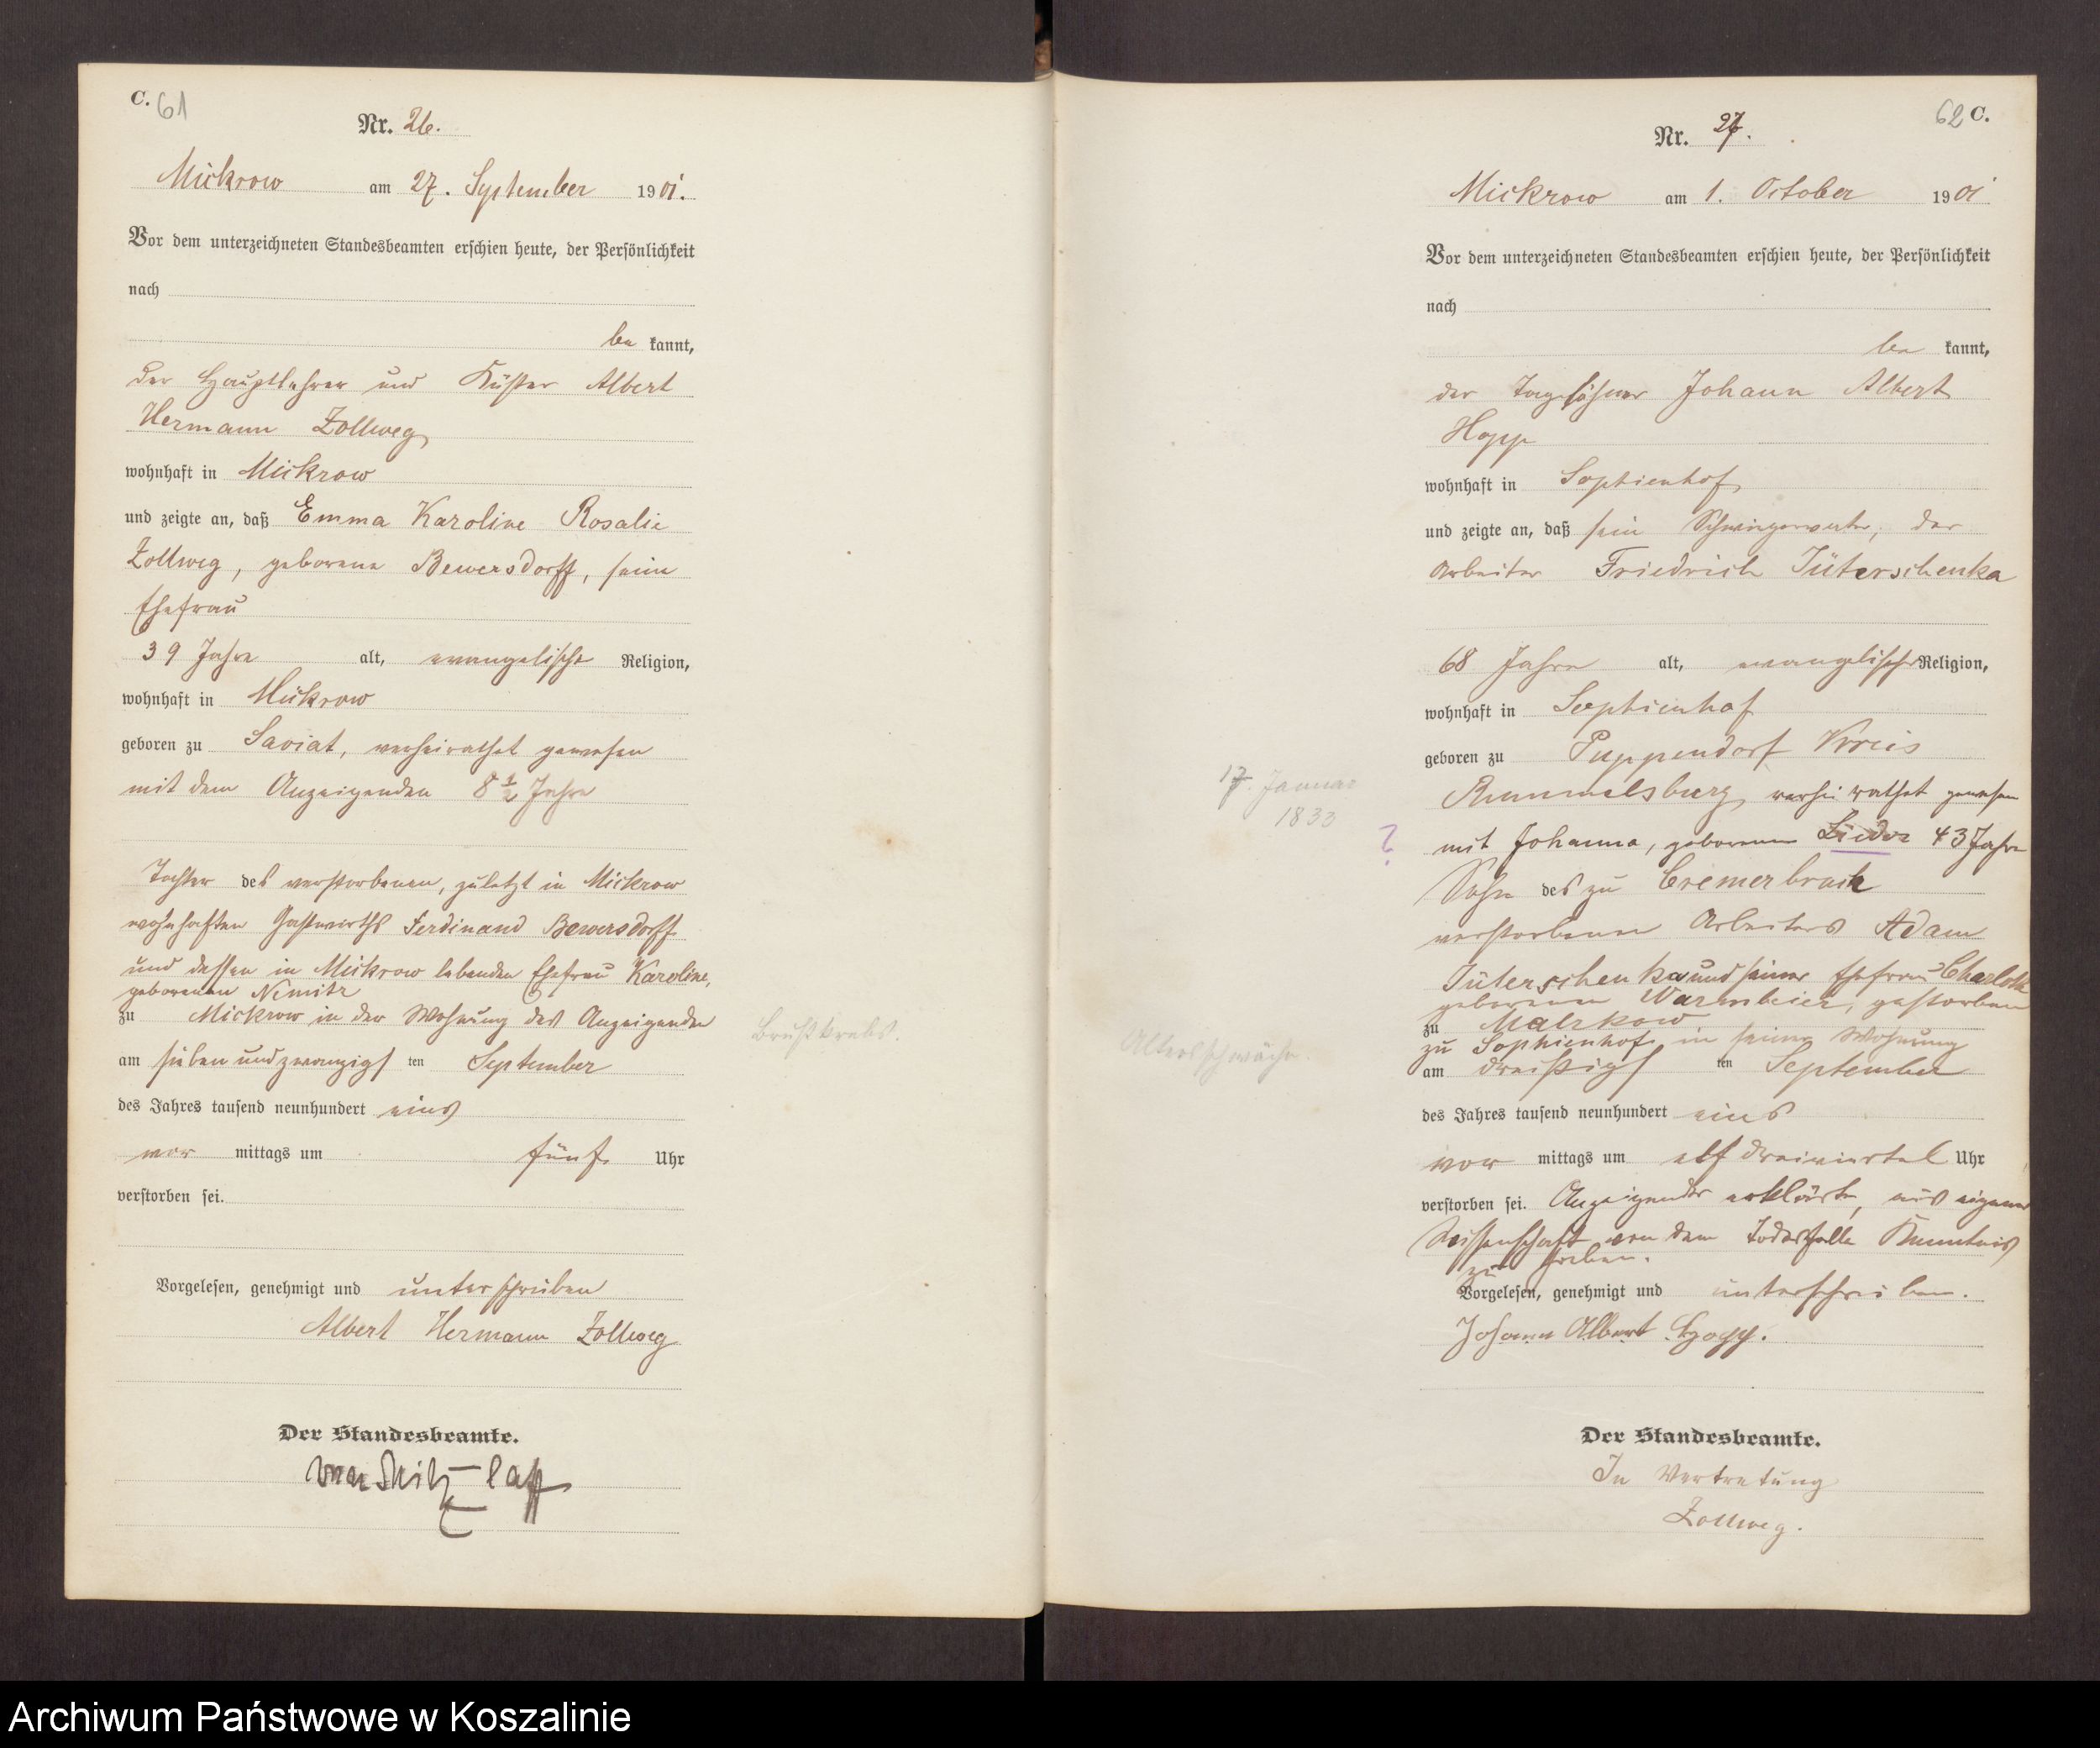 C. 61
Nr. 26.
Mickrow am 27. September 1901.
Vor dem unterzeichneten Standesbeamten erschien heute, der Persönlichkeit
nach
be kannt,
der Hauptlehrer und Küster Albert
Hermann Zollweg
wohnhaft in Mickrow
und zeigte an, daß Emma Karoline Rosalie
Zollweg, geborene Bewersdorff, seine
Ehefrau
39 Jahre alt, evangelische Religion,
wohnhaft in Mickrow
geboren zu Saviat, verheirathet gewesen
mit dem Anzeigenden 8 1/2 Jahre
Tochter des verstorbenen, zuletzt in Mickrow
wohnhaften Gastwirths Ferdinand Bewersdorff
und dessen in Mickrow lebenden Ehefrau Karoline,
geborenen Nemitz
zu Mickrow in der Wohnung des Anzeigenden
Brustkrebs.
am sieben und zwanzigs ten September
des Jahres tausend neunhundert eins
vor mittags um fünf Uhr
verstorben sei.
Vorgelesen, genehmigt und unterschrieben
Albert Hermann Zollweg
Der Standesbeamte.
62 C.
Nr. 27.
Mickrow am 1. October 1901
Vor dem unterzeichneten Standesbeamten erschien heute, der Persönlichkeit
nach
be kannt,
der Tagelöhner Johann Albert
Hopp
wohnhaft in Sophienhof
und zeigte an, daß sein Schwiegervater, der
Arbeiter Friedrich Jüterschenka
68 Jahre alt, evangelischer Religion,
wohnhaft in Sophienhof
geboren zu Puppendorf Kreis
17. Januar
1833
Rummelsburg, verheirathet gewesen
? mit Johanna, geborenen Lieder 43 Jahre
Sohn des zu Cremerbruch
verstorbenen Arbeiters Adam
Jüterschenka und seiner Ehefrau Charlotte
geborenen Warmbier, gestorben
zu Malzkow
zu Sophienhof in seiner Wohnung
Altersschwäche.
am dreißigs ten September
des Jahres tausend neunhundert eins
vor mittags um elf dreiviertel Uhr
verstorben sei. Anzeigender erklärte, aus eigener
Wissenschaft von dem Todesfalle Kenntnis
zu haben.
Vorgelesen, genehmigt und unterschrieben.
Johann Albert Hopp.
Der Standesbeamte.
In Vertretung
Zollweg.
Archiwum Państwowe w Koszalinie